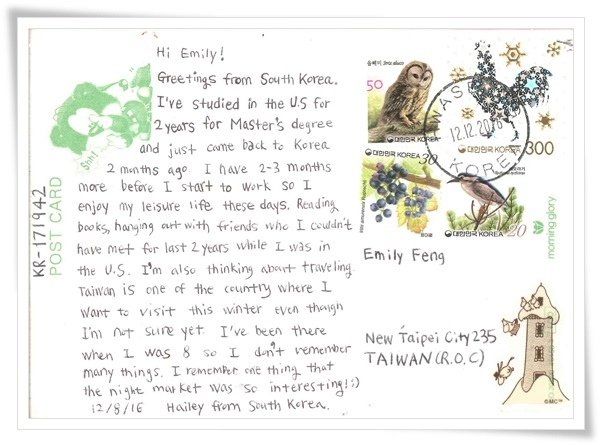 Hi Emily!
Greetings from South Korea.
I've studied in the U.S for
2 years for Master's degree
and just came back to Korea
2 months ago. I have 2-3 months
more before I start to work so I
enjoy my leisure life these days. Reading
books, hanging out with friends who I couldn't
have met for last 2 years while I was in
the U.S. I'm also thinking about traveling.
Taiwan is one of the country where I
want to visit this winter even though
I'm not sure yet. I've been there
when I was 8 so I don't remember
many things. I remember one thing that
the night market was so interesting! :)
12/8/16 Hailey from South Korea.
Shh!
KR-171942
POST CARD
올빼미 Strix aluco
50
대한민국 KOREA
300
대한민국 KOREA
30
대한민국 KOREA
머루
대한민국 KOREA
20
12.12.2016
KOREA
Emily Feng
New Taipei City 235
TAIWAN (R.O.C)
morning glory
©MC™